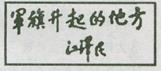 军旗升起的地方
江泽民